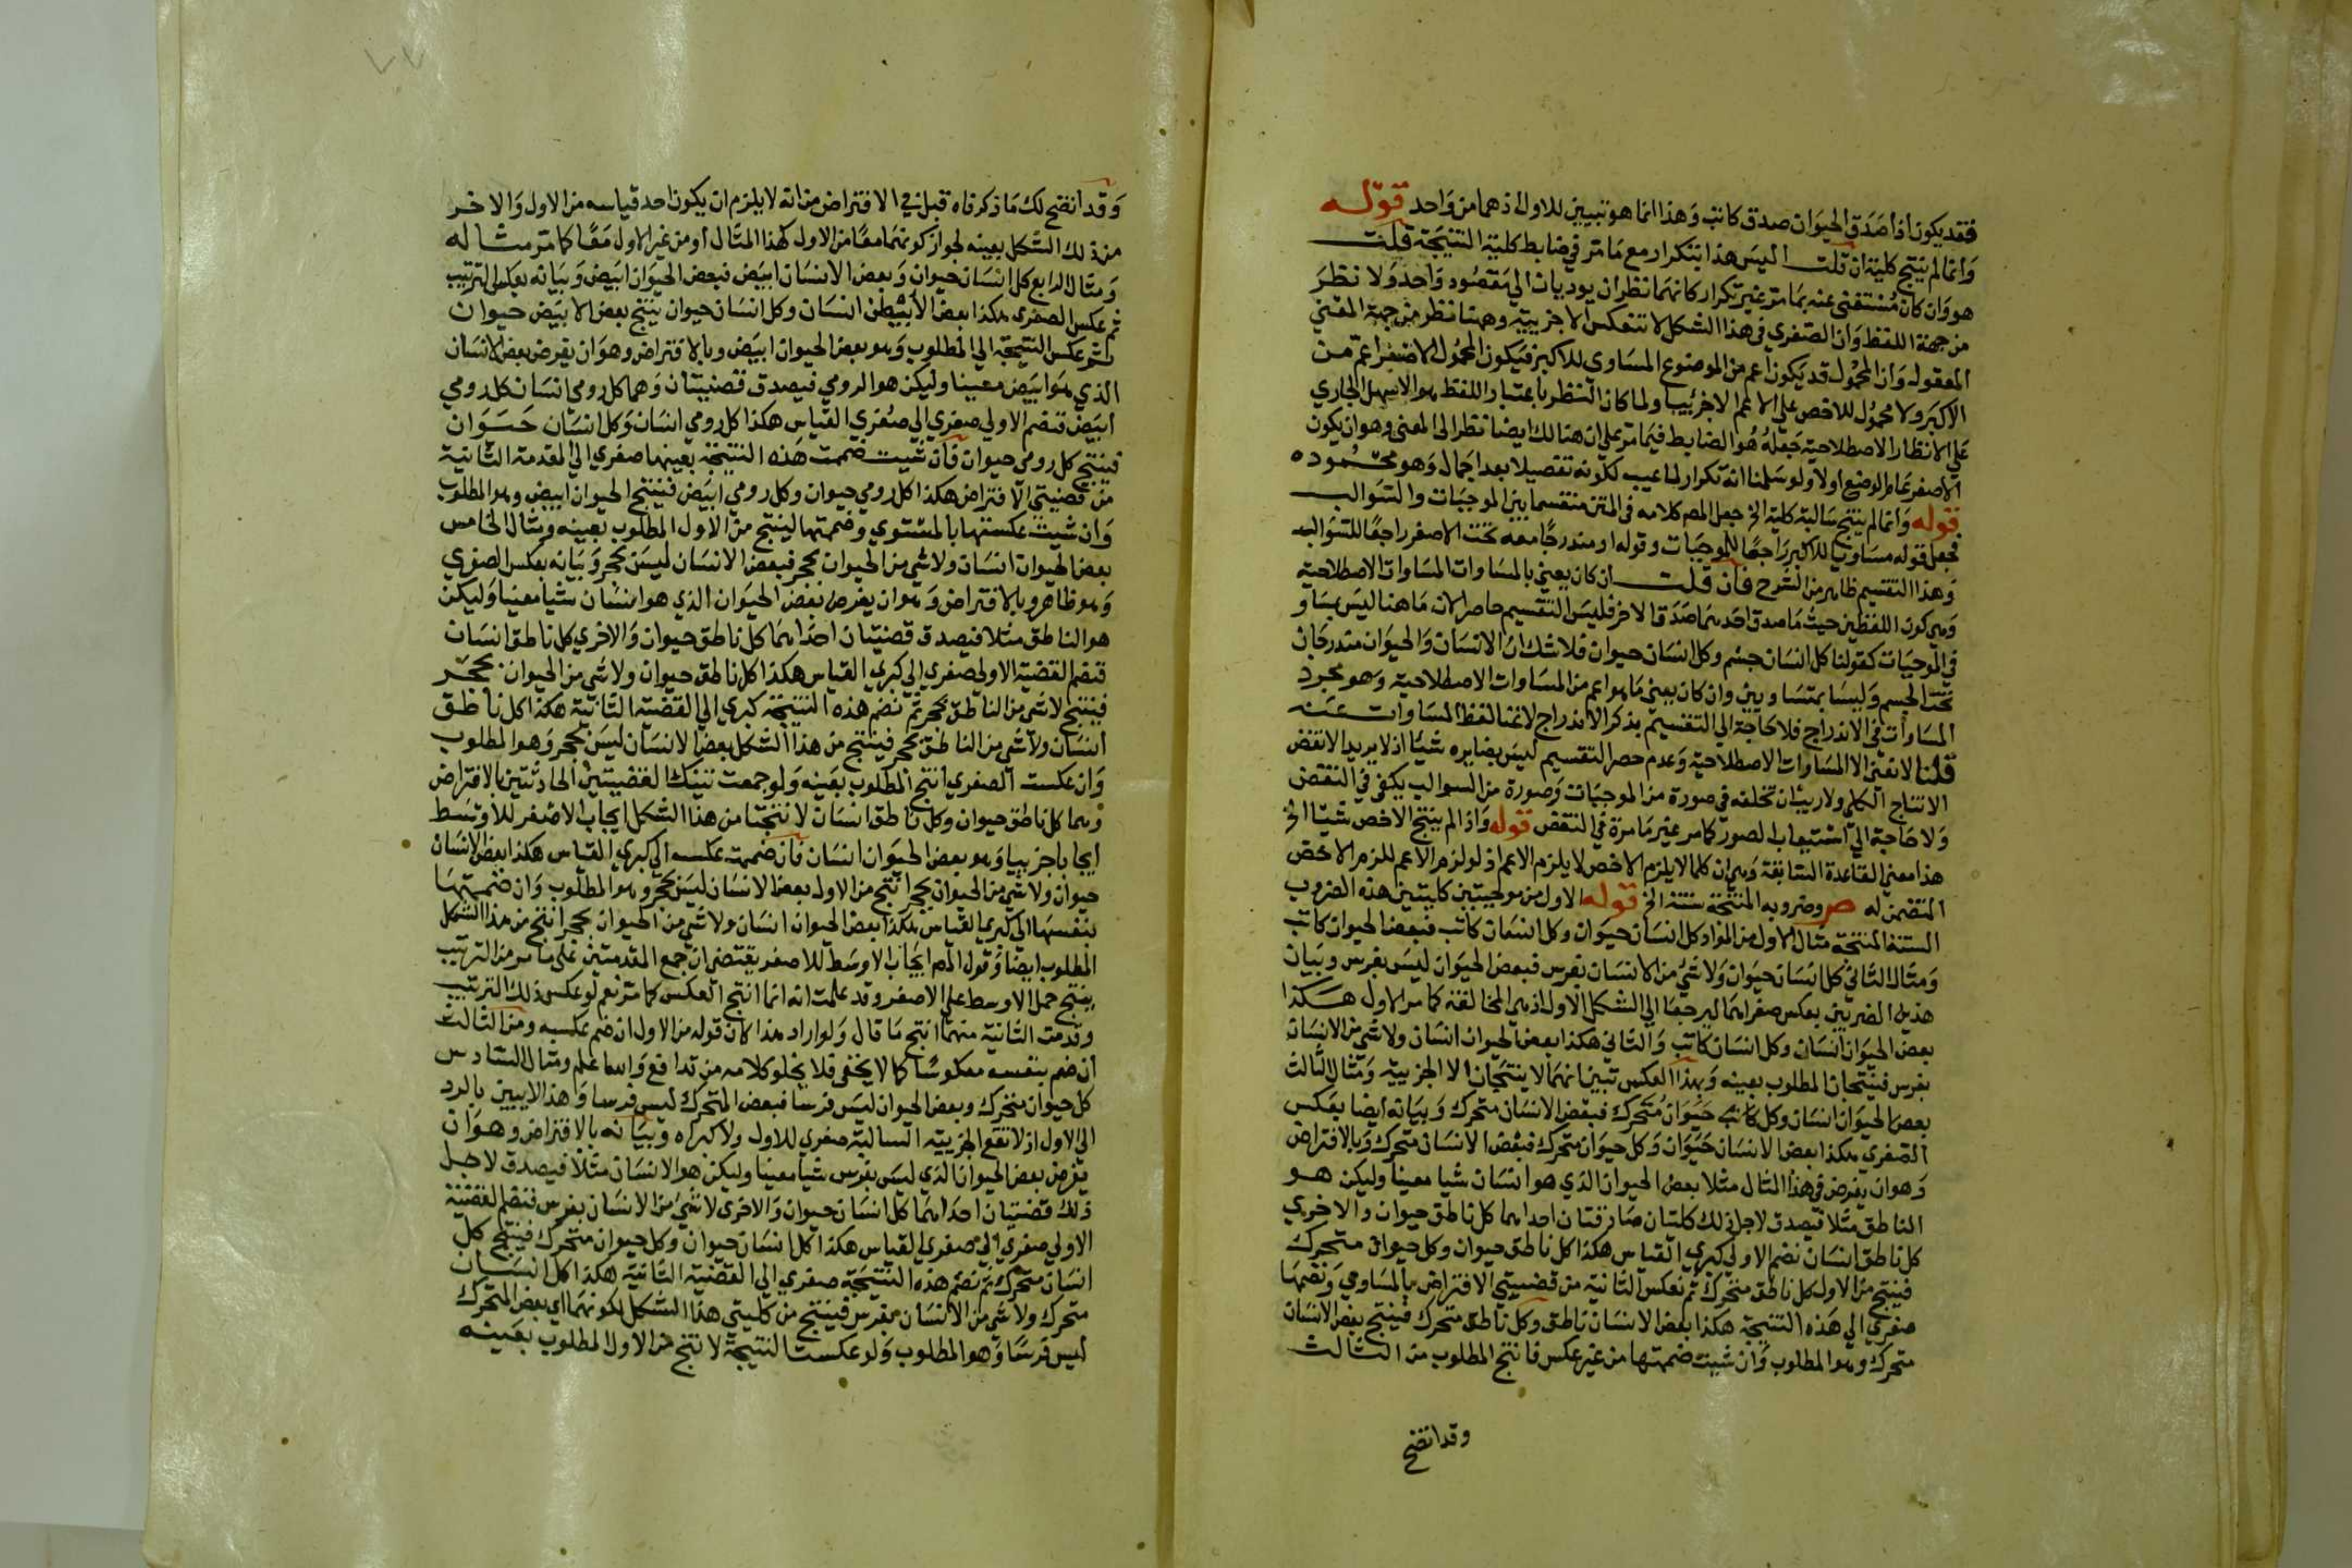 فقد يكون اذا صدق الحيوان صدق كاتب وهذا انما هو تبيين للاول اذ هما من واحد قوله
وانما لم ينتج كلية ان قلت اليس هذا بتكرار مع ما مر في ضابط كلية النتيجة قلت
هو وان كان مستغنى عنه بما مر غير تكرار كانهما نظران يوديان الى مقصود واحد ولا نظر
من جهة اللفظ وان الصغرى في هذا الشكل لا تنعكس الا جزيية وهنا نظر من جهة المعنى
المعقول وان المحمول قد يكون اعم من الموضوع المساوى للاكبر فيكون المحمول الاصغر اعم من
الاكبر ولا محمول للاخص على الاعم الا جزئيا ولما كان النظر باعتبار اللفظ هو الاسهل الجاري
على الانظار الاصطلاحية جعله هو الضابط فيما مر على ان هنالك ايضا نظر الى المعنى وهو ان يكون
الاصغر عام الوضع اولا ولو سلمنا انه تكرار لما عيب لكونه تفصيلا بعد اجمال وهو محمود
قوله وانما لم ينتج سالبة كلية الخ جعل المص كلامه في المتن منقسما بين الموجبات والسوالب
فجعل قوله مساويا للاكبر راجعا للموجبات وقوله او مندرجا معه تحت الاصغر راجعا للسوالب
وهذا التقسيم ظاهر من الشرح فان قلت ان كان يعني بالمساوات المساوات الاصطلاحية
وهي كون اللفظين حيث ما صدق احدهما صدق الاخر فليس التقسيم حاصرا لان ما هنا ليس بمساو
في الموجبات كقولنا كل انسان جسم وكل انسان حيوان فلا شك ان الانسان والحيوان مندرجان
تحت الجسم وليسا بمتساويين وان كان يعني ما هو اعم من المساوات الاصطلاحية وهو مجرد
المساوات في الاندراج فلا حاجة الى التقسيم بذكر الاندراج لاغنا لفظ المساوات عنه
قلنا لا نعني الا المساوات الاصطلاحية وعدم حصر التقسيم ليس بضايره شيئا اذ لا يريد الا نقض
الانتاج الكلي ولا ريب ان تخلفه في صورة من الموجبات وصورة من السوالب يكفي في النقض
ولا حاجة الى استيعاب الصور كما مر غير ما مرة في النقض قوله واذا لم ينتج الاخص شيئا الخ
هذا معنى القاعدة السابقة وهي ان كلما لا يلزم الاخص لا يلزم الاعم اذ لو لزم الاعم للزم الاخص
المتضمن له ص وضروبه المنتجة ستة الخ قوله الاول من موجبتين كليتين هذه الضروب
الستة المنتجة مثال الاول من المواد كل انسان حيوان وكل انسان كاتب فبعض الحيوان كاتب
ومثال الثاني كل انسان حيوان ولا شيء من الانسان بفرس فبعض الحيوان ليس بفرس وبيان
هذين الضربين بعكس صغراهما ليرجعا الى الشكل الاول اذ هي المخالفة كما مر الاول هكذا
بعض الحيوان انسان وكل انسان كاتب والثاني هكذا بعض الحيوان انسان ولا شي من الانسان
بفرس فينتجان المطلوب بعينه وبهذا العكس تبين انهما لا ينتجان الا الجزيية ومثال الثالث
بعض الحيوان انسان وكل حيوان متحرك فبعض الانسان متحرك وبيانه ايضا بعكس
الصغرى هكذا بعض الانسان حيوان وكل حيوان متحرك فبعض الانسان متحرك وبالافتراض
وهو ان يفرض في هذا المثال مثلا بعض الحيوان الذي هو انسان شيا معينا وليكن هو
الناطق مثلا فيصدق لاجل ذلك كليتان صادقتان احداهما كل ناطق حيوان والاخرى
كل ناطق انسان نضم الاولى لكبرى القياس هكذا كل ناطق حيوان وكل حيوان متحرك
فينتج من الاول كل ناطق متحرك ثم نعكس الثانية من قضيتي الافتراض بالمساوي ونضمها
صغرى الى هذه النتيجة هكذا بعض الانسان ناطق وكل ناطق متحرك فينتج بعض الانسان
متحرك وهو المطلوب وان شيت ضمتها من غير عكس فانتج المطلوب من الثالث
وقد اتضح
وقد اتضح لك ما ذكرناه قبل في الافتراض من انه لا يلزم ان يكون احد قياسيه من الاول والاخر
من ذلك الشكل بعينه لجواز كونهما معا من الاول كهذا المثال او من غير الاول معا كما مر مثاله
ومثال الرابع كل انسان حيوان وبعض الانسان ابيض فبعض الحيوان ابيض وبيانه بعكس الترتيب
ثم عكس الصغرى هكذا بعض الابيض انسان وكل انسان حيوان ينتج بعض الابيض حيوان
ثم عكس النتيجة الى المطلوب وهو بعض الحيوان ابيض وبالافتراض وهو ان يفرض بعض الانسان
الذي هو ابيض معينا وليكن هو الرومي فيصدق قضيتان وهما كل رومي انسان كل رومي
ابيض فنضم الاولى صغرى الى صغرى القياس هكذا كل رومي انسان وكل انسان حيوان
فينتج كل رومي حيوان فان شيت ضممت هذه النتيجة بعينها صغرى الى المقدمة الثانية
من قضيتي الافتراض هكذا كل رومي حيوان وكل رومي ابيض فينتج الحيوان ابيض وهو المطلوب
وان شيت عكستها بالمستوي وضممتها لينتج من الاول المطلوب بعينه ومثال الخامس
بعض الحيوان انسان ولا شي من الحيوان بحجر فبعض الانسان ليس بحجر وبيانه بعكس الصغرى
وهو ظاهر وبالافتراض وهو ان يفرض بعض الحيوان الذي هو انسان شيا معينا وليكن
هو الناطق مثلا فيصدق قضيتان احداهما كل ناطق حيوان والاخرى كل ناطق انسان
فنضم القضية الاولى صغرى الى كبرى القياس هكذا كل ناطق حيوان ولا شي من الحيوان بحجر
فينتج لا شي من الناطق بحجر ثم نضم هذه النتيجة كبرى الى القضية الثانية هكذا كل ناطق
انسان ولا شي من الناطق بحجر فينتج من هذا الشكل بعض الانسان ليس بحجر وهو المطلوب
وان عكست الصغرى انتج المطلوب بعينه ولو جمعت تينك القضيتين الحادثتين بالافتراض
وهما كل ناطق حيوان وكل ناطق انسان لانتجتا من هذا الشكل ايجاب الاصغر للاوسط
ايجابا جزييا وهو بعض الحيوان انسان فان ضممت عكسه الى كبرى القياس هكذا بعض الانسان
حيوان ولا شي من الحيوان بحجر انتج من الاول بعض الانسان ليس بحجر وهو المطلوب وان ضممتها
بنفسها الى كبرى القياس هكذا بعض الحيوان انسان ولا شي من الحيوان بحجر انتج من هذا الشكل
المطلوب ايضا وقول المص ايجاب الاوسط للاصغر يقتضي ان جمع المقدمتين على ما مر من الترتيب
ينتج حمل الاوسط على الاصغر وقد علمت انه انما انتج العكس كما مر نعم لو عكس ذلك الترتيب
وقدمت الثانية منهما انتج ما قال ولو اراد هذا لكان قوله من الاول ان ضم عكسه ومن الثالث
ان ضم بنفسه معكوسا كما لا يخفى فلا يخلو كلامه من تدافع والله اعلم ومثال السادس
كل حيوان متحرك وبعض الحيوان ليس فرسا فبعض المتحرك ليس فرسا وهذا لا يبين بالرد
الى الاول اذ لا تقع الجزيية السالبة صغرى للاول ولا كبراه وبيانه بالافتراض وهو ان
يفرض بعض الحيوان الذي ليس بفرس شيا معينا وليكن هو الانسان مثلا فيصدق لاجل
ذلك قضيتان احداهما كل انسان حيوان والاخرى لا شيء من الانسان بفرس فنضم القضية
الاولى صغرى الى صغرى القياس هكذا كل انسان حيوان وكل حيوان متحرك فينتج كل
انسان متحرك ثم نضم هذه النتيجة صغرى الى القضية الثانية هكذا كل انسان
متحرك ولا شي من الانسان بفرس فينتج من كليتي هذا الشكل لكونهما اي بعض المتحرك
ليس فرسا وهو المطلوب ولو عكست النتيجة لانتج من الاول المطلوب بعينه